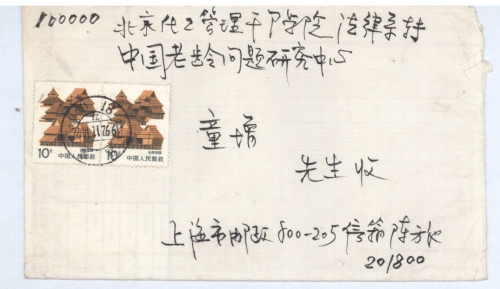 100000
北京化工管理干部学院 法律系转
中国老龄问题研究中心
童增
先生收
上海市邮政800-205信箱陈方
201800
10分 中国人民邮政
10分 中国人民邮政